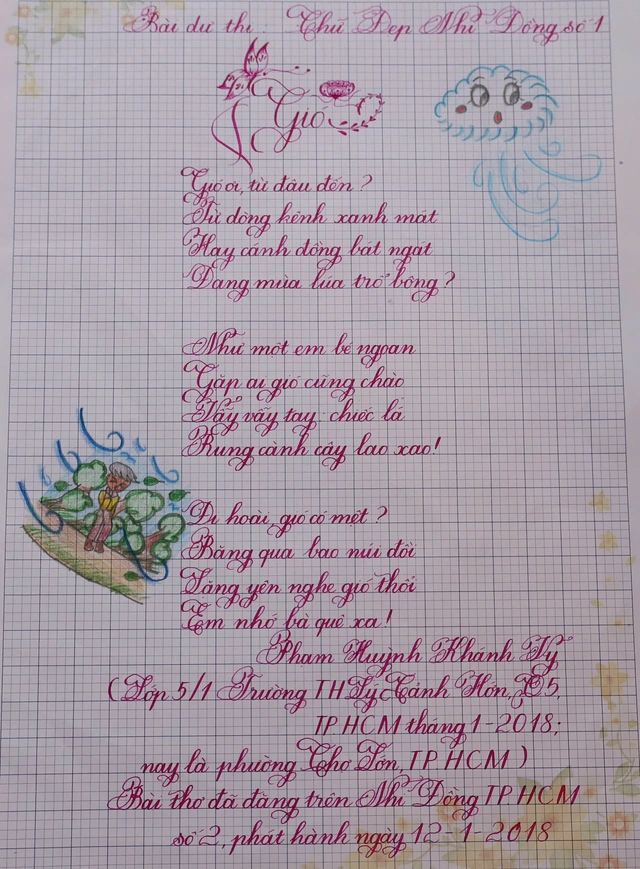 Bài dự thi : Chữ Đẹp Nhi Đồng số 1
Gió
Gió ơi, từ đâu đến ?
Từ dòng kênh xanh mát
Hay cánh đồng bát ngát
Đang mùa lúa trổ bông ?
Như một em bé ngoan
Gặp ai gió cũng chào
Vẫy vẫy tay chiếc lá
Rung cành cây lao xao!
Đi hoài, gió có mệt ?
Băng qua bao núi đồi
Lặng yên nghe gió thổi
Em nhớ bà quê xa!
Phạm Huỳnh Khánh Vy
(Lớp 5/1 Trường TH Lý Cảnh Hớn, Q5,
TP HCM tháng 1-2018;
nay là phường Chợ Lớn, TP HCM )
Bài thơ đã đăng trên Nhi Đồng TP HCM
số 2, phát hành ngày 12-1-2018